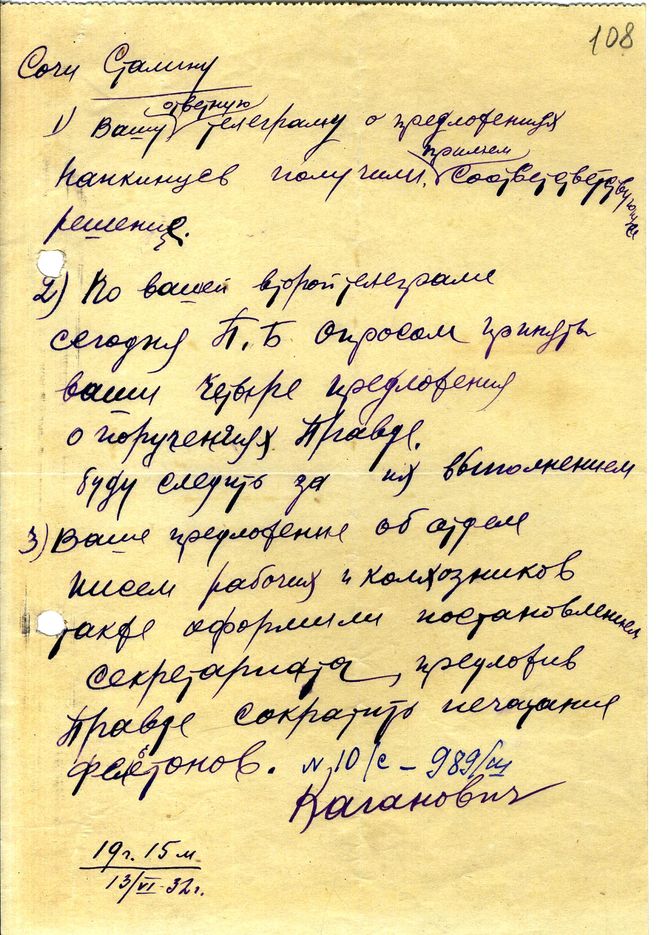 108
Сочи Сталину
1) Вашу ответную телеграмму о предложениях
нанкинцев получили. примем Соответствующие
решение.
2) По вашей второй телеграме
сегодня П.Б. опросом приняты
ваши четыре предложения
о поручениях Правде.
буду следить за их выполнением
3) Ваше предложение об отделе
писем рабочих и колхозников
также оформили постановлением
секретариата, предложив
Правде сократить печатание
фельетонов. N 10/с – 989/ш
Каганович
19г. 15м
13/VI–32г.